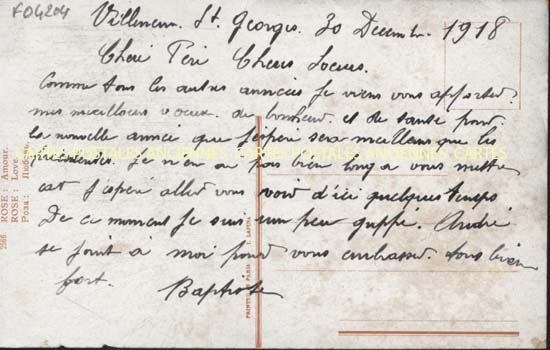 F04204
Villeneuve St. Georges. 30 Decembre 1918
Cheri Péri Cheres Soeurs.
Comme tous les autres annees je viens vous apporter
mes meilleurs voeux de bonheur et de santé pour
la nouvelle année que j'espere sera meilleure que les
précédentes. Je n'en ai pas bien long a vous mettre
car j'espere aller vous voir d'ici quelques temps
De ce moment je suis un peu grippé. André
se joint à moi pour vous embrasser tous bien
fort. Baptiste
CARTES POSTALES ANCIENNES CARTES POSTALES ANCIENNES CARTES
2566 ROSE: Amour.
ROSE: Love
PRINTED PARIS LAPINA